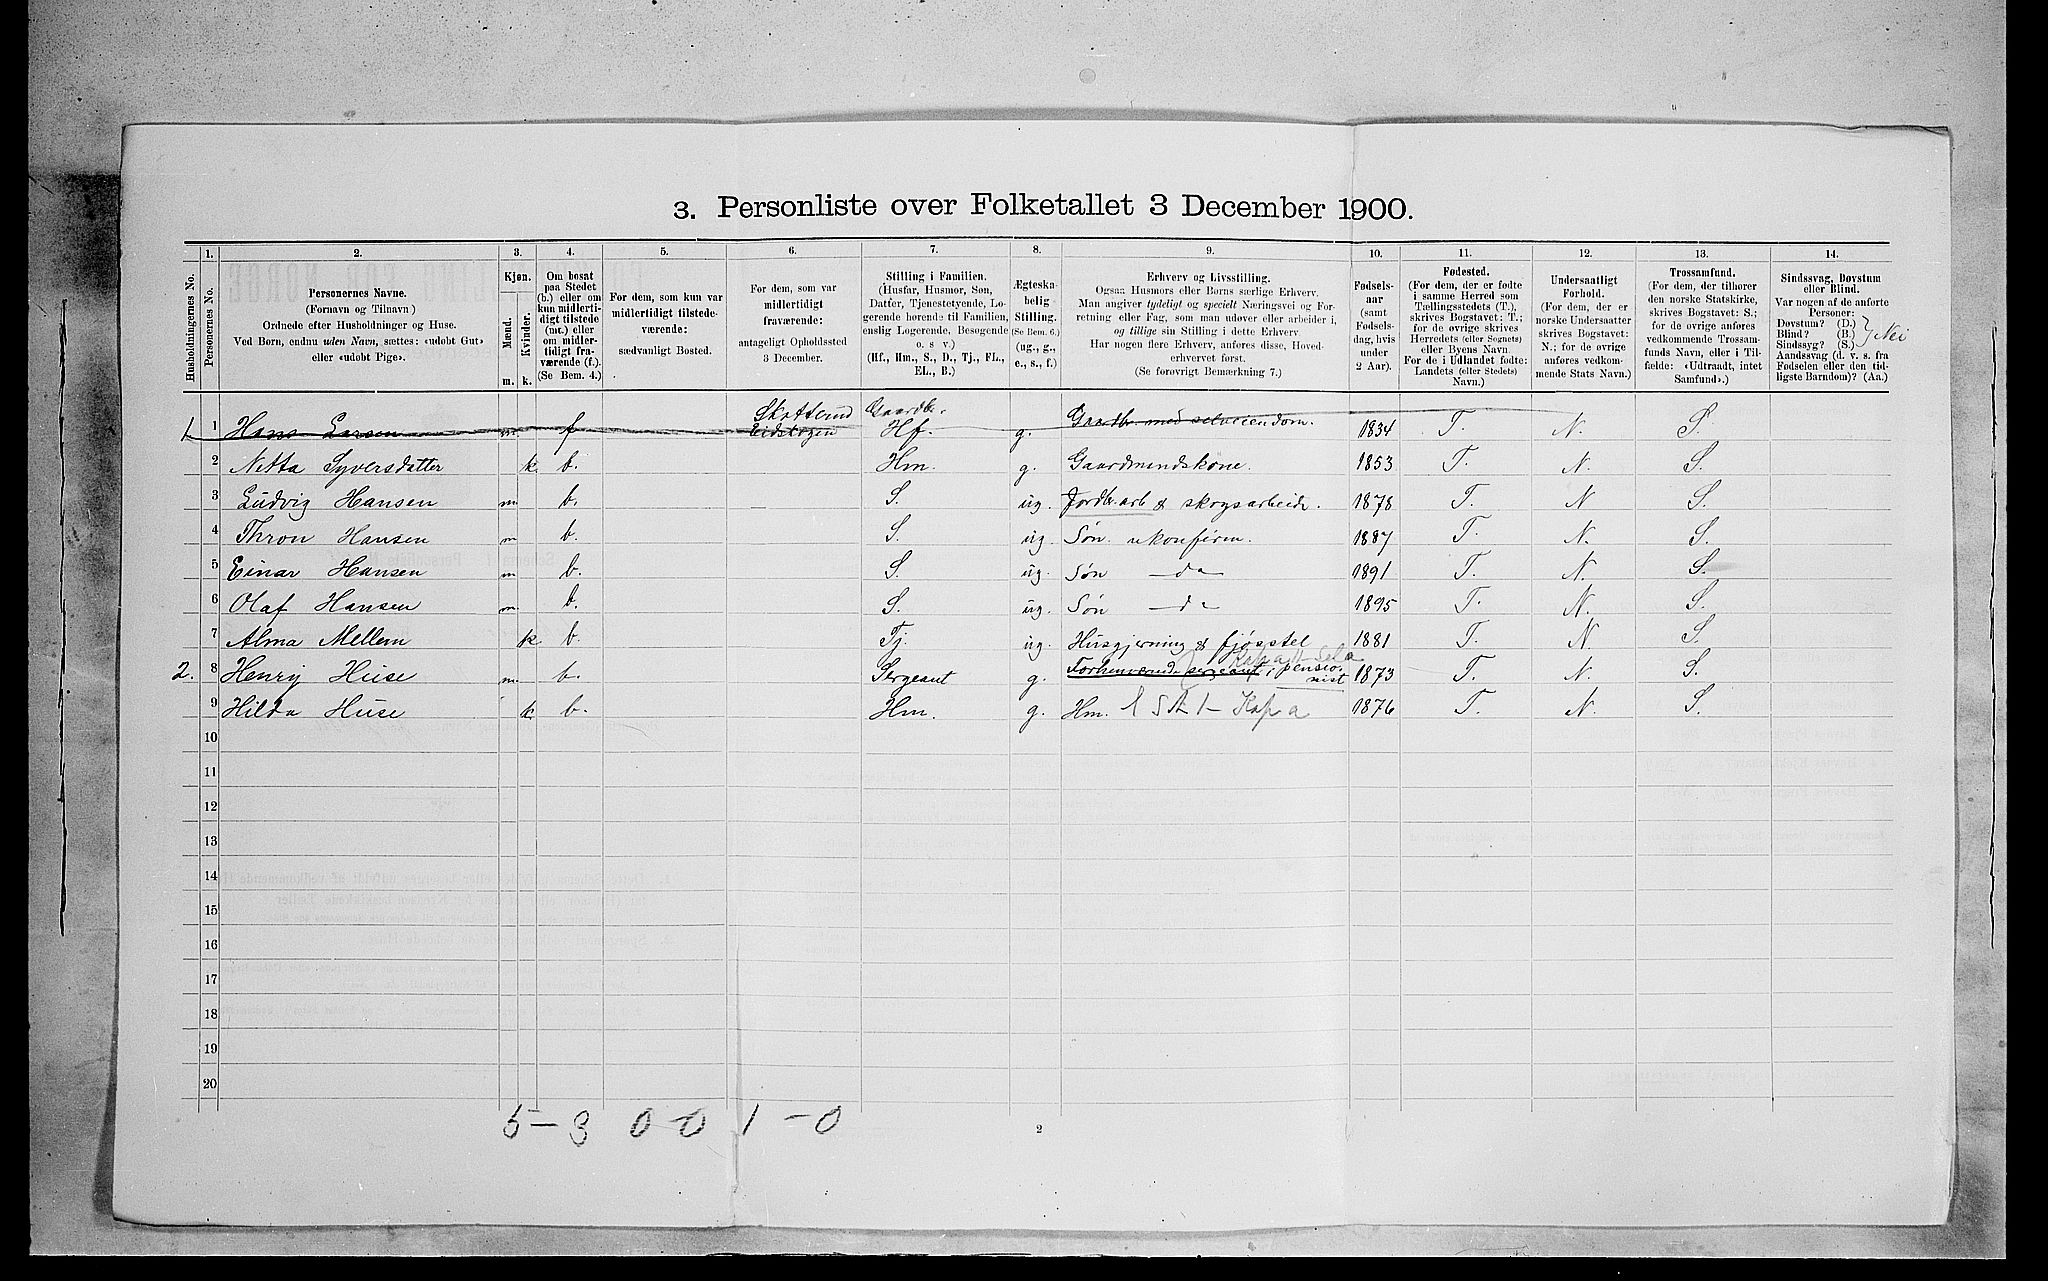 3. Personliste over Folketallet 3 December 1900.
Husholdningernes No.
1.
Personernes No.
2.
Personernes Navne.
(Fornavn og Tilnavn)
Ordnede efter Husholdninger og Huse.
Ved Børn, endnu uden Navn, sættes: «udøbt Gut»
eller «udøbt Pige».
3.
Kjøn.
Mænd.
Kvinder.
m. k.
4.
Om bosat
paa Stedet
(b.) eller om
kun midlerti-
digt tilstede
(mt.) eller
om midler-
tidigt fra-
værende (f.).
(Se Bem. 4.)
5.
For dem, som kun var
midlertidigt tilstede-
værende:
sædvanligt Bosted.
6.
For dem, som var
midlertidigt
fraværende:
antageligt Opholdssted
3 December.
7.
Stilling i Familien.
(Husfar, Husmor, Søn,
Datter, Tjenestetyende, Lo-
gerende hørende til Familien,
enslig Logerende, Besøgende
o. s. v.)
(Hf., Hm., S., D., Tj., FL.,
EL., B.)
8.
Ægteska-
belig
Stilling.
(Se Bem. 6.)
(ug., g.,
e., s., f.)
9.
Erhverv og Livsstilling.
Ogsaa Husmors eller Børns særlige Erhverv.
Man angiver tydeligt og specielt Næringsvei og For-
retning eller Fag, som man udøver eller arbeider i,
og tillige sin Stilling i dette Erhverv.
Har nogen flere Erhverv, anføres disse, Hoved-
erhvervet først.
(Se forøvrigt Bemærkning 7.)
10.
Fødsels-
aar
(samt
Fødsels-
dag, hvis
under
2 Aar).
11.
Fødested.
(For dem, der er fødte
i samme Herred som
Tællingsstedets (T.),
skrives Bogstavet: T.;
for de øvrige skrives
Herredets (eller Sognets)
eller Byens Navn.
For de i Udlandet fødte:
Landets (eller Stedets)
Navn.)
12.
Undersaatligt
Forhold.
(For dem, der er
norske Undersaatter
skrives Bogstavet:
N.; for de øvrige
anføres vedkom-
mende Stats Navn.)
13.
Trossamfund.
(For dem, der tilhører
den norske Statskirke,
skrives Bogstavet: S.;
for de øvrige anføres
vedkommende Trossam-
funds Navn, eller i Til-
fælde: «Udtraadt, intet
Samfund».)
14.
Sindssvag, Døvstum
eller Blind.
Var nogen af de anførte
Personer:
Døvstum? (D.)
Blind? (B.)
Sindssyg? (S.)
Aandssvag (d. v. s. fra
Fødselen eller den tid-
ligste Barndom)? (Aa.)
Nei
1 1 Hans Larsen m. f Skotterud Eidskogen Gaardbr. Hf. g. Gaardbr. med selveiendom. 1834 T. N. S.
2 Netta Syversdatter k b. Hm. g. Gaardmandskone. 1853 T. N. S.
3 Ludvig Hansen m. b. S. ug. Jordbr.arb & skogsarbeide. 1878 T. N S.
4 Thron Hansen m b. S. ug. Søn. ukonfirm. 1887 T. N. S.
5 Einar Hansen m b. S. ug. Søn — da — 1891 T. N. S.
6 Olaf Hansen m. b. S. ug. Søn — d — 1895 T. N. S.
7 Alma Mellem k b. Tj. ug. Husgjerning & fjøsstel 1881 T. N. S.
2. 8 Henry Huse m. b. Sergeant g. Forhenværende sergeant, pensionist 1873 T. N. S.
9 Hilda Huse k b. Hm. g. Hm. 1876 T. N. S.
10
11
12
13
14
15
16
17
18
19
20
5 — 3 0 0 1 — 0
2